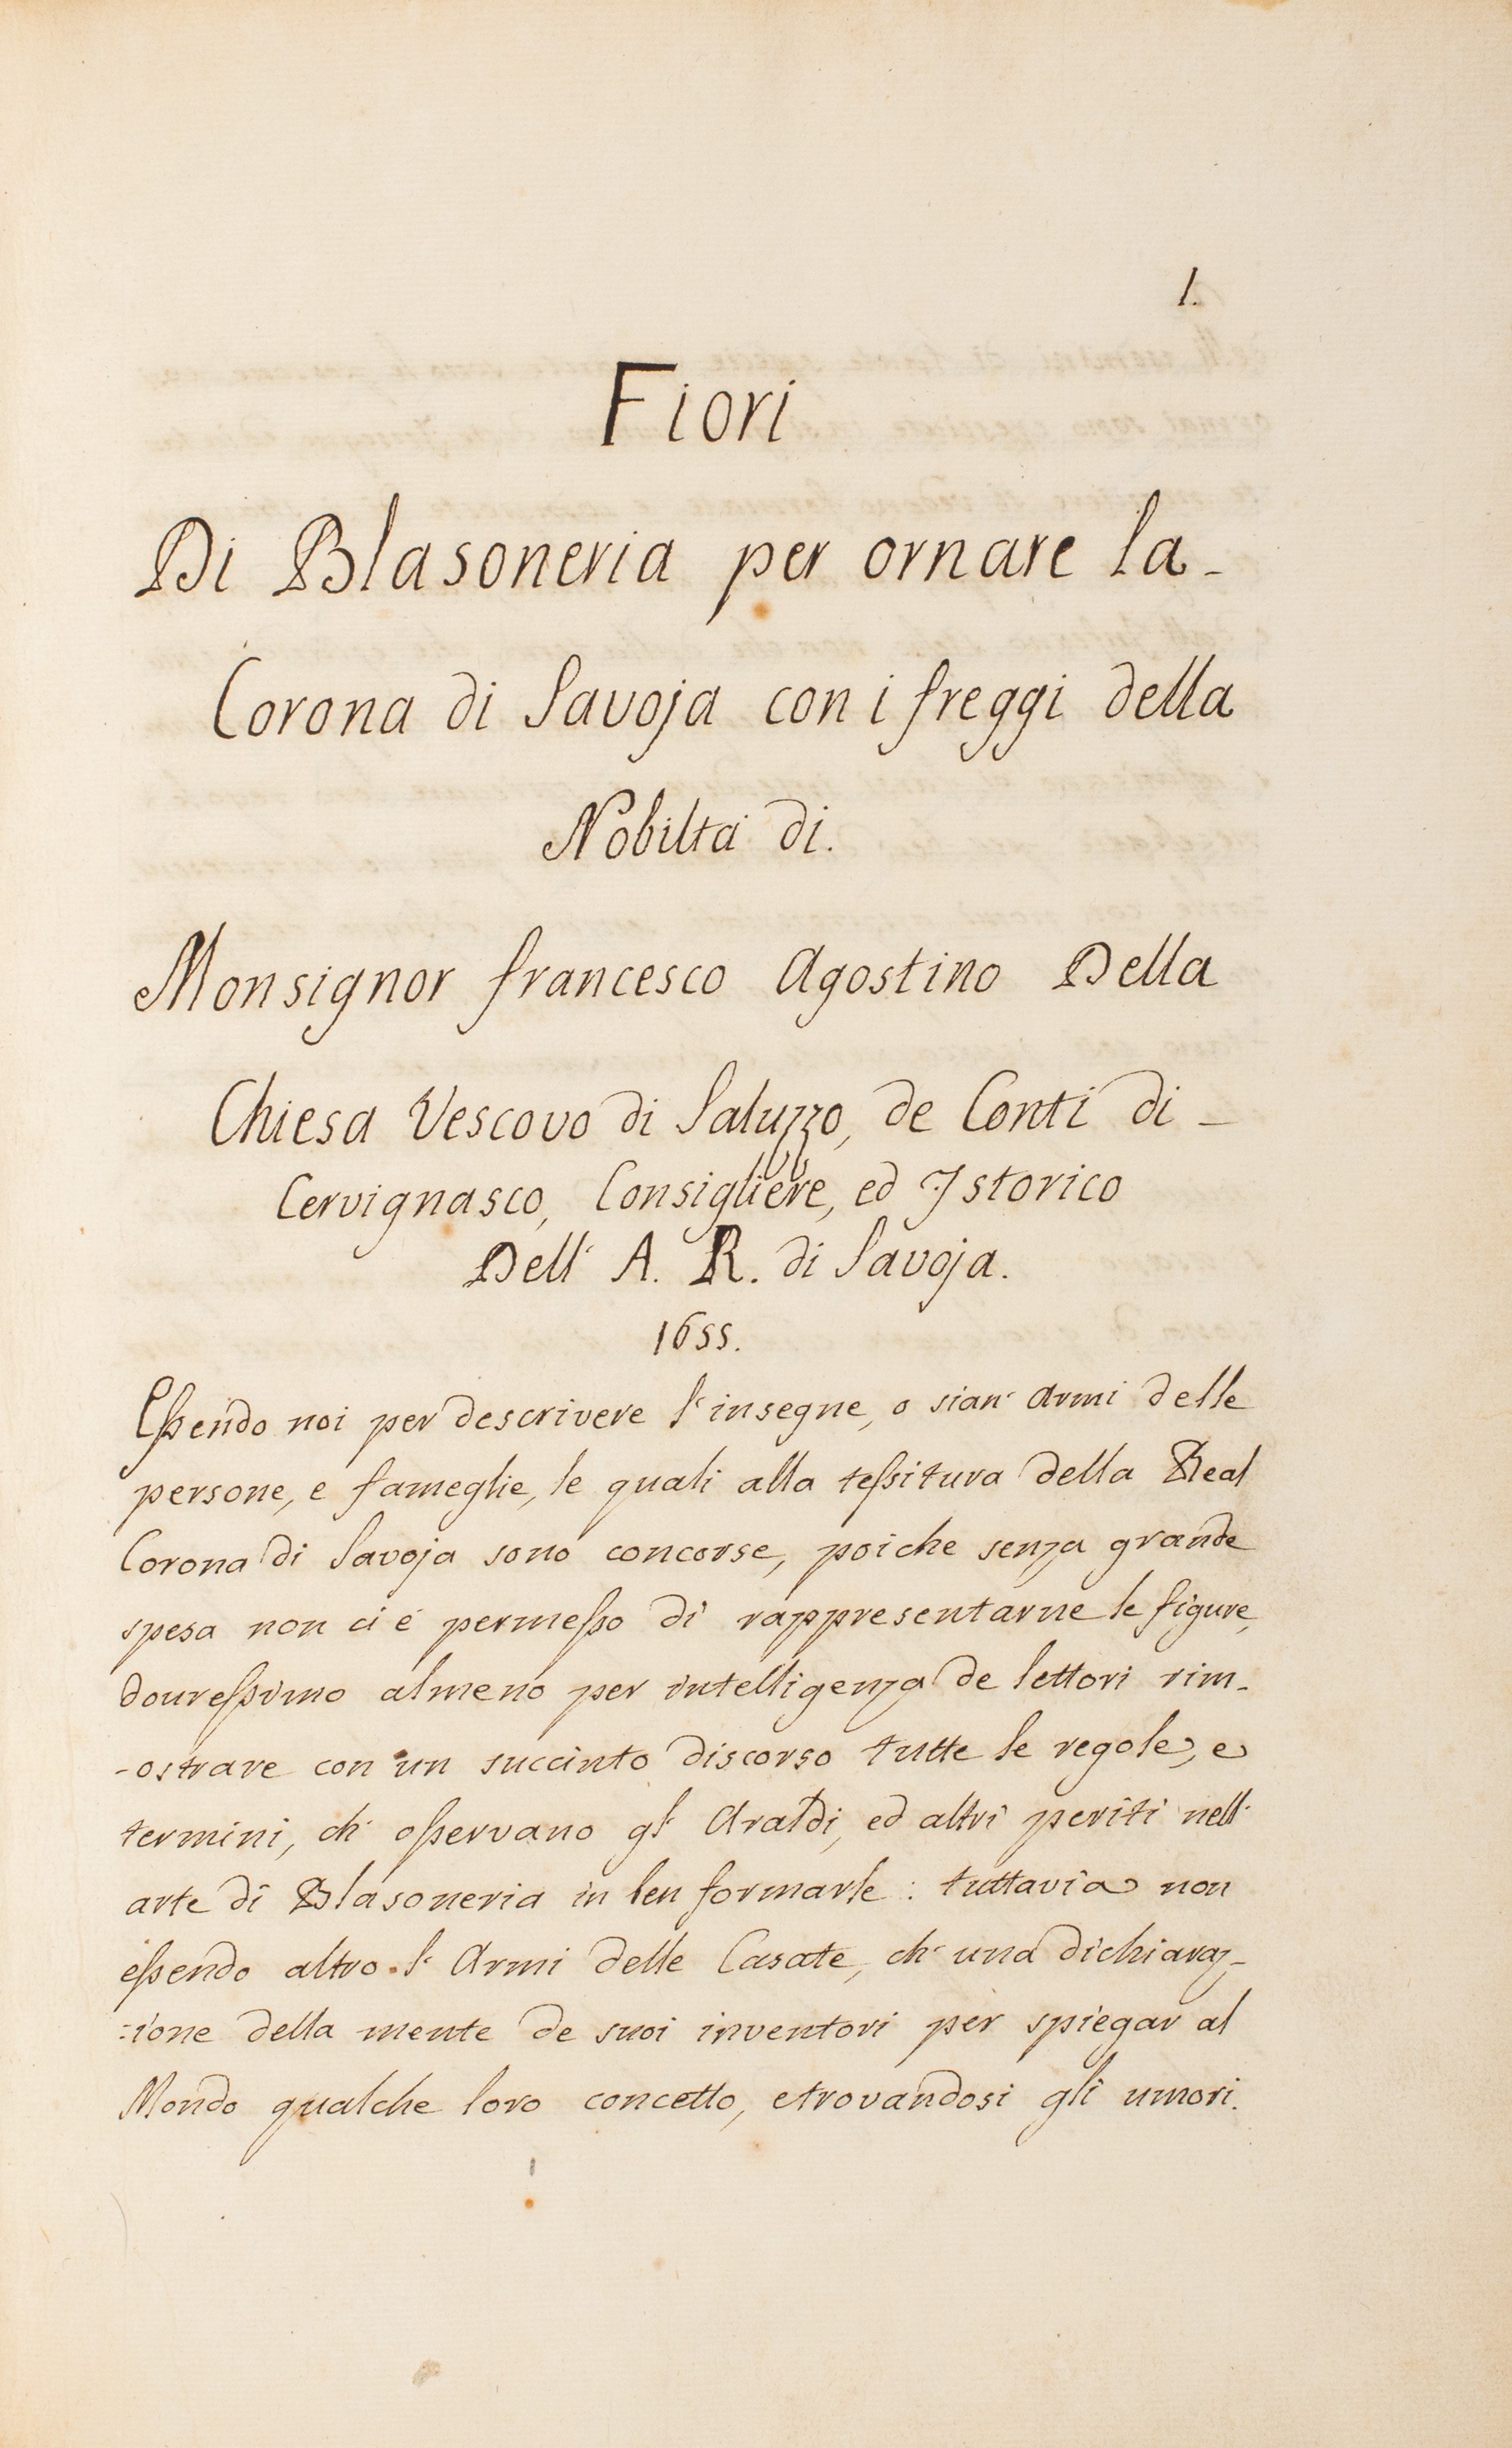 1.
Fiori
Di Blasoneria per ornare la-
Corona di Savoja con i freggi della
Nobiltà di.
Monsignor francesco Agostino Della
Chiesa Vescovo di Saluzzo, de Conti di -
Cervignasco, Consigliere, ed Istorico
Dell' A. R. di Savoja.
1655.
Essendo noi per descrivere l'insegne, o sian' Armi delle
persone, e fameglie, le quali alla tessitura della Real
Corona di Savoja sono concorse, poiche senza grande
spesa non ci é permesso di rappresentarne le figure,
douressimo almeno per intelligenza de lettori rim-
-ostrare con un succinto discorso tutte le regole, e
termini, ch' osservano gl' Araldi, ed altri periti nell'
arte di Blasoneria in ben formarle: tuttavia non
essendo altro l' Armi delle Casate, ch' una dichiaraz-
=ione della mente de suoi inventori per spiegar al
Mondo qualche loro concetto, e trovandosi gli umori.